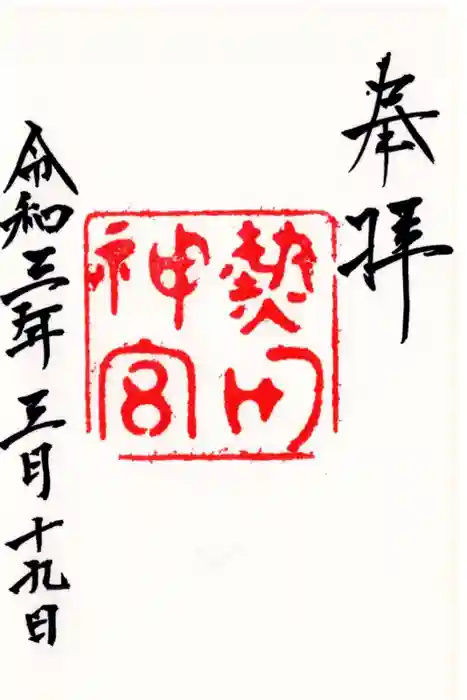 奉拝
熱田
神宮
令和三年三月十九日